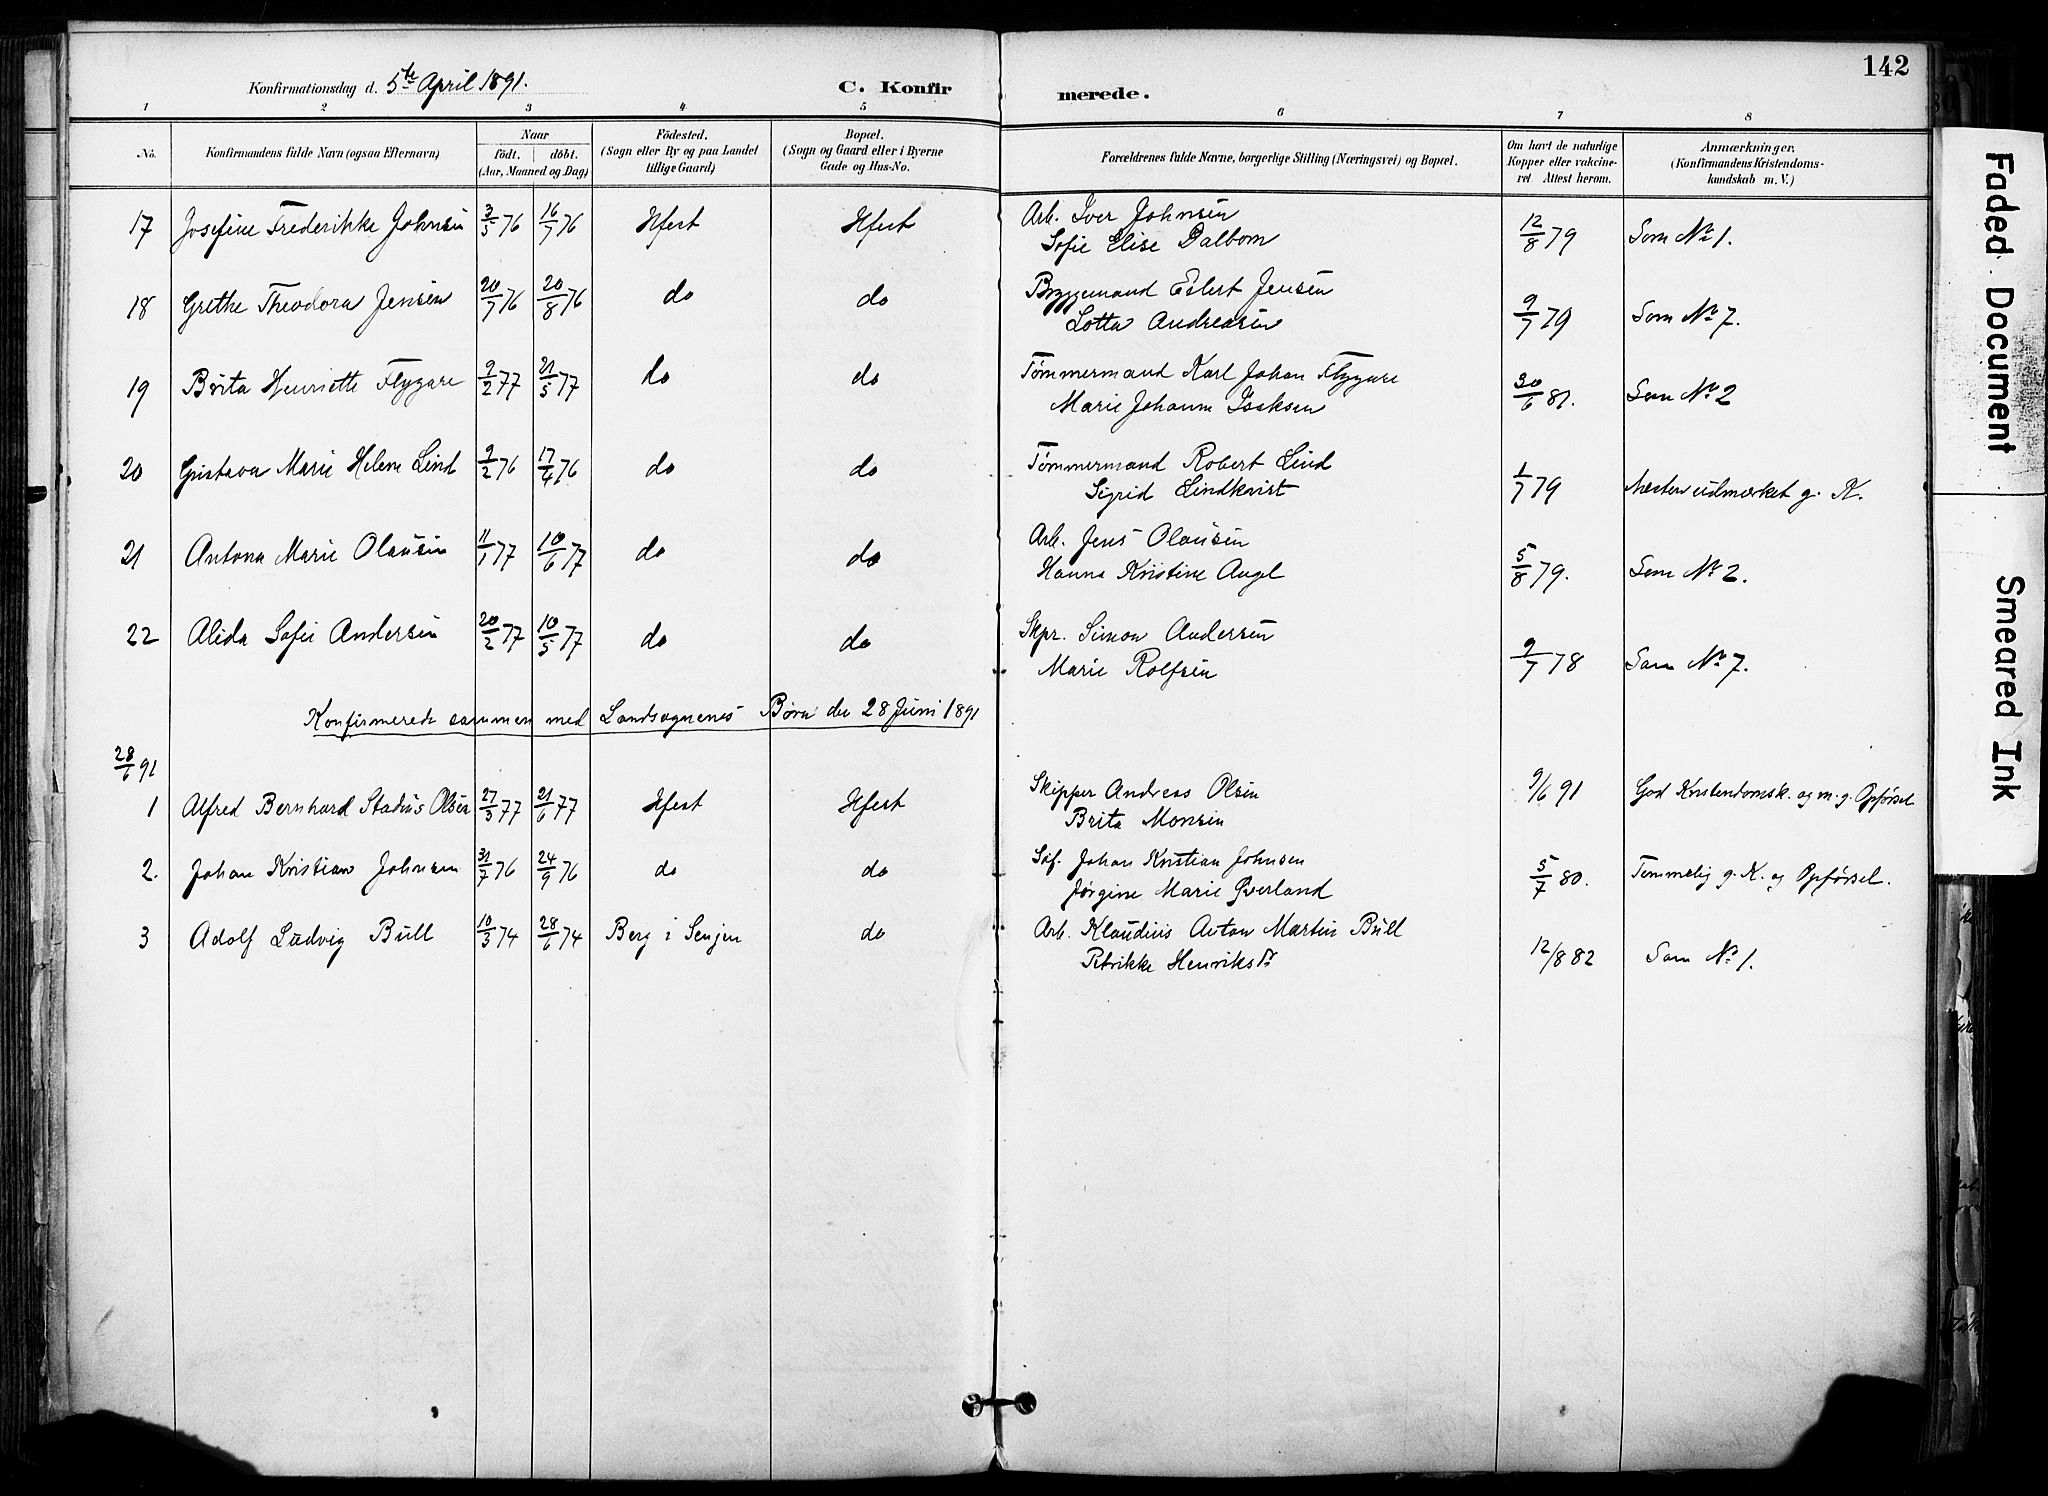 142
Konfirmationsdag d. 5te April 1891.
C. Konfirmerede.
1 2 3 4 5 6 7 8
No.
Konfirmandens fulde Navn (ogsaa Efternavn)
Naar födt. döbt. (Aar, Maaned og Dag)
Födested. (Sogn eller By og paa Landet tillige Gaard)
Bopæl. (Sogn og Gaard eller i Byerne Gade og Hus-No.
Forældrenes fulde Navne, borgerlige Stilling (Næringsvei) og Bopæl.
Om havt de naturlige Kopper eller vakcineret Attest herom.
Anmærkninger. (Konfirmandens Kristendomskundskab m. V.)
17 Josefine Frederikke Johnsen 3/5 76 16/7 76 Hfest Hfest Arb. Iver Johnsen 12/8 79 Som No 1.
Sofie Elise Dalbom
18 Grethe Theodora Jensen 20/7 76 20/8 76 do do Byggemand Eilert Jensen 9/7 79 Som No 7.
Lotta Andreasen
19 Brita Henriette Flygare 9/2 77 21/5 77 do do Tømmermand Karl Johan Flygare 30/6 81. Som No 2
Marie Johanne Isaksen
20 Gustava Marie Helene Lind 9/2 76 17/4 76 do do Tømmermand Robert Lind 1/7 79 Næsten udmærket g. K.
Sigrid Lindkvist
21 Antona Marie Olausen 11/1 77 10/6 77 do do Arb. Jens Olausen 5/8 79. Som No 2.
Hanna Kristine Angel
22 Alida Sofie Andersen 20/2 77 10/5 77 do do Skpr. Simon Andersen 9/7 78 Som No 7.
Marie Rolfsen
Konfirmerede sammen med Landsognenes Børn den 28 Juni 1891
28/6 91
1 Alfred Bernhard Stadius Olsen 27/3 77 21/6 77 Hfest Hfest Skipper Andreas Olsen 9/6 91 God Kristendomsk. og m. g. Opførsel
Brita Monsen
2. Johan Kristian Johnsen 31/7 76 24/9 76 do do Søf. Johan Kristian Johnsen 5/7 80. Temmelig g. K. og Opførsel.
Jørgine Marie Qverland
3 Adolf Ludvig Bull 10/3 74 28/6 74 Berg i Senjen do Arb. Klaudius Anton Martin Bull 12/8 82 Som No 1.
Petrikke Henriksdr
Faded Document
Smeared Ink